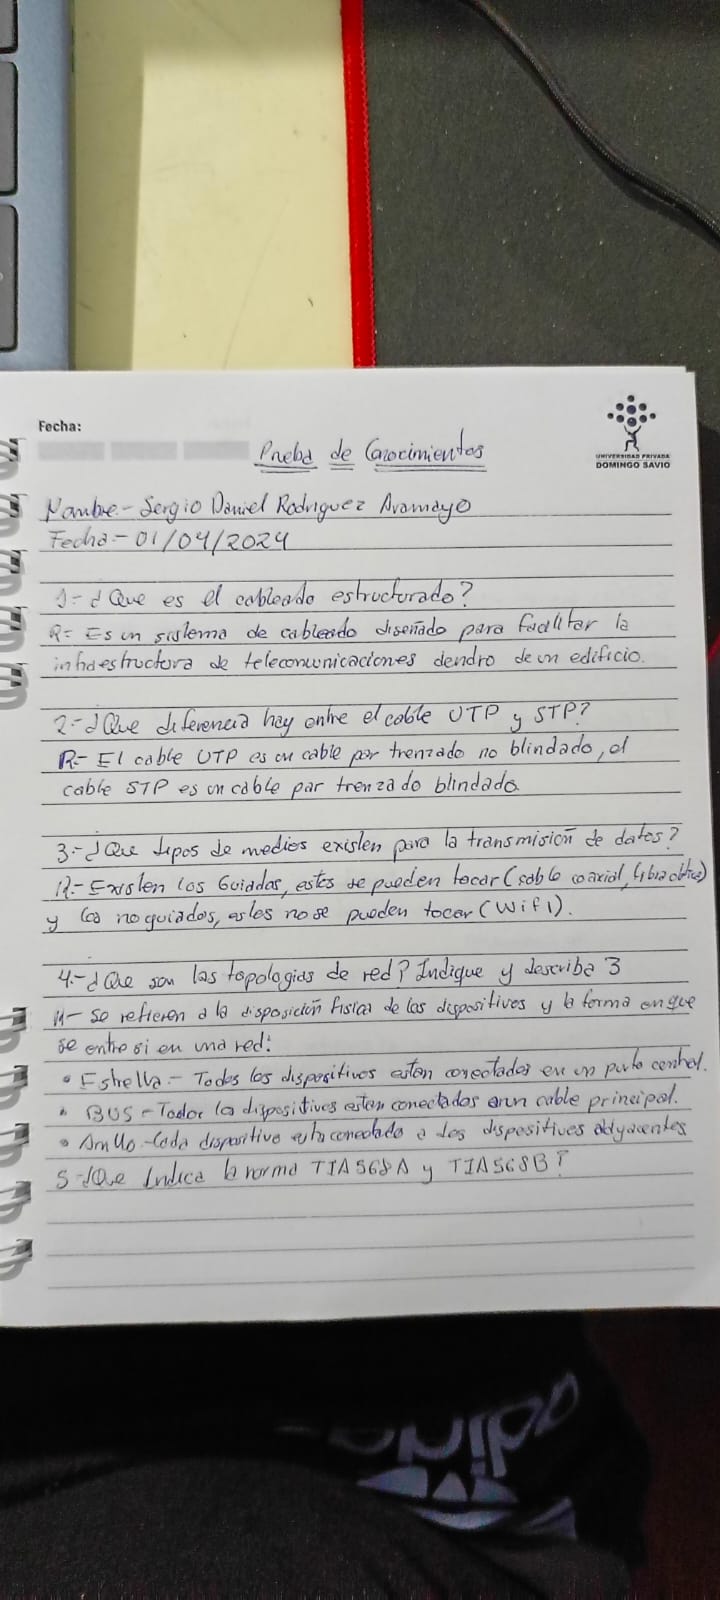 Fecha:
UNIVERSIDAD PRIVADA
DOMINGO SAVIO
Prueba de Conocimientos
Nombre.- Sergio Daniel Rodriguez Aramayo
Fecha.- 01/04/2024
1.- ¿Que es el cableado estructurado?
R= Es un sistema de cableado diseñado para facilitar la
infraestructura de telecomunicaciones dendro de un edificio.
2.- ¿Que diferencia hay entre el cable UTP y STP?
R.- El cable UTP es un cable par trenzado no blindado, el
cable STP es un cable par trenzado blindado.
3.- ¿Que tipos de medios existen para la transmisión de datos?
R.- Existen los Guiados, estos se pueden tocar (cable coaxial, fibra optica)
y los no guiados, estos no se pueden tocar (Wifi).
4.- ¿Que son las topologias de red? Indique y describa 3
R- Se refieren a la disposición física de los dispositivos y la forma en que
se entre si en una red:
• Estrella.- Todos los dispositivos estan conectados en un punto central.
• BUS - Todos los dispositivos estan conectados a un cable principal.
• Anillo - Cada dispositivo esta conectado a los dispositivos adyacentes
5-¿Que Indica la norma TIA568A y TIA568B?
adidas